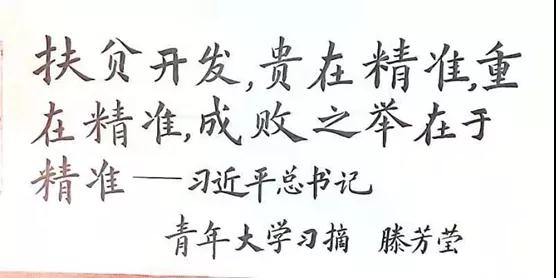 扶贫开发,贵在精准,重
在精准,成败之举在于
精准——习近平总书记
青年大学习摘 滕芳莹